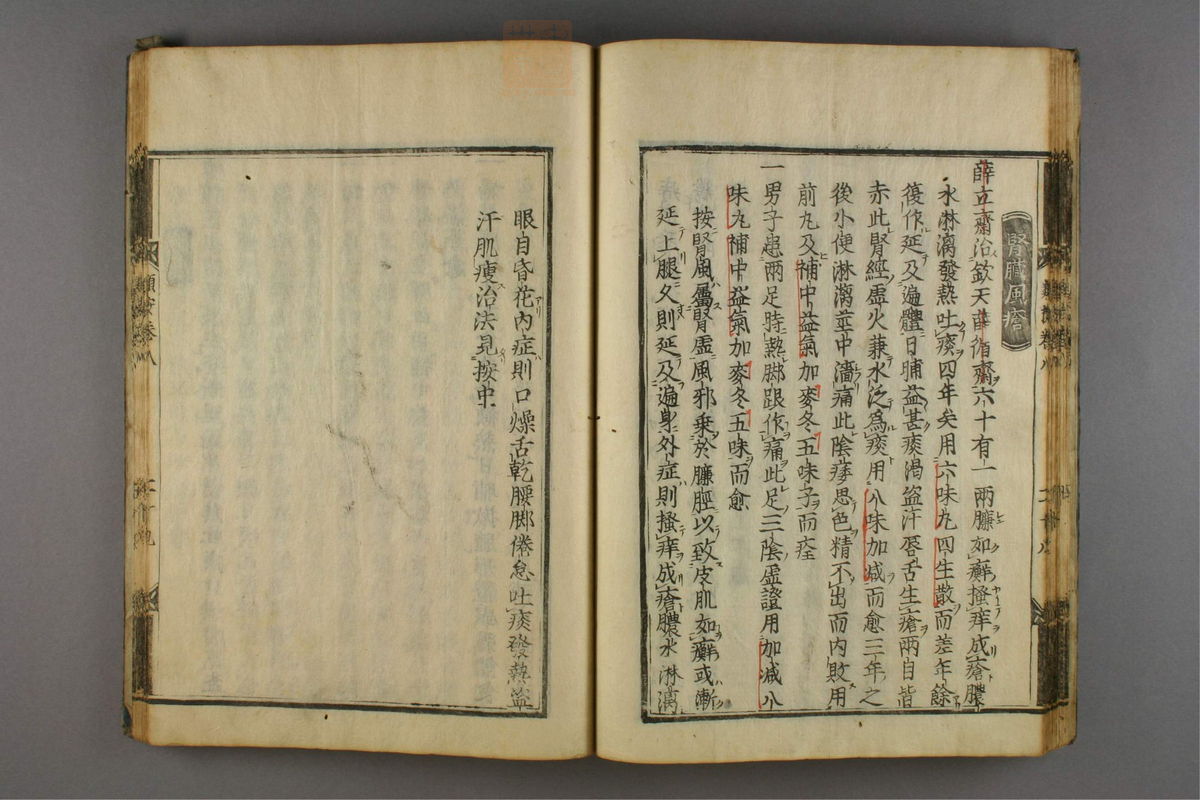 腎臟風瘡
薛立齋治欽天薛循齋六十有一兩臁如癬搔痒成瘡膿
水淋漓發熱吐痰四年矣用六味丸四生散而差年餘
復作延及遍體日晡益甚痰渴盜汗唇舌生瘡兩目皆
赤此腎經虛火兼水泛爲痰用八味加減而愈三年之
後小便淋漓莖中濇痛此陰痿思色精不出而内敗用
前丸及補中益氣加麥冬五味子而痊
一男子患兩足時熱脚跟作痛此足三陰虛證用加減八
味丸補中益氣加麥冬五味而愈
按腎風屬腎虛風邪乗於臁脛以致皮肌如癬或漸
延上腿久則延及遍身外症則搔痒成瘡膿水淋漓
眼目昏花内症則口燥舌乾腰脚倦怠吐痰發熱盜
汗肌瘦治法見按中
類案卷八